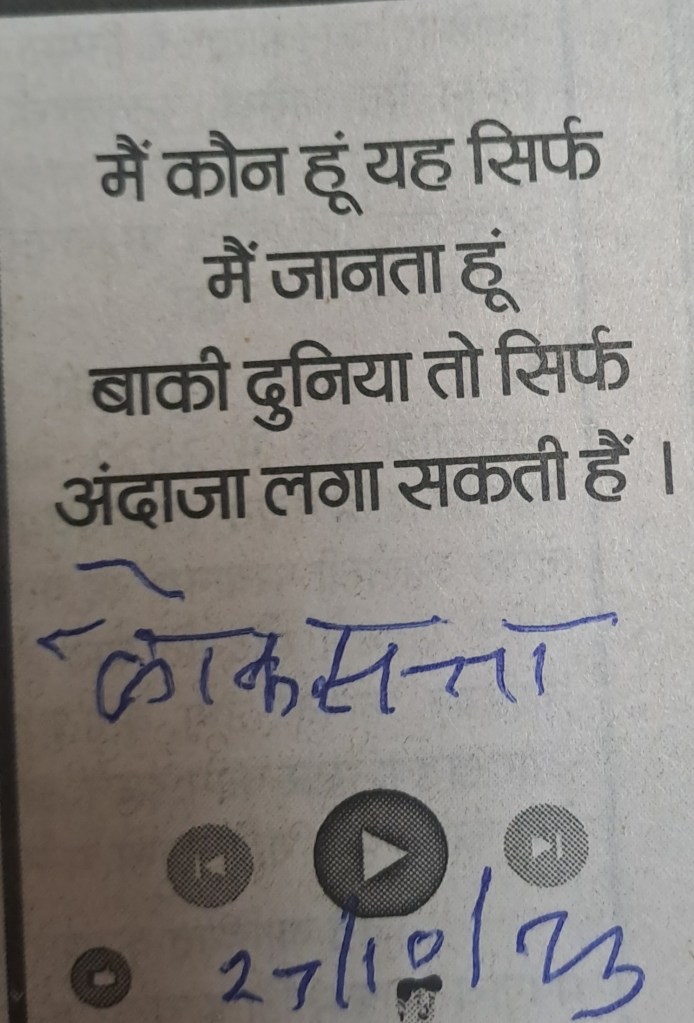 मैं कौन हूं यह सिर्फ
मैं जानता हूं
बाकी दुनिया तो सिर्फ
अंदाजा लगा सकती हैं ।
लोकसत्ता
27/10/23